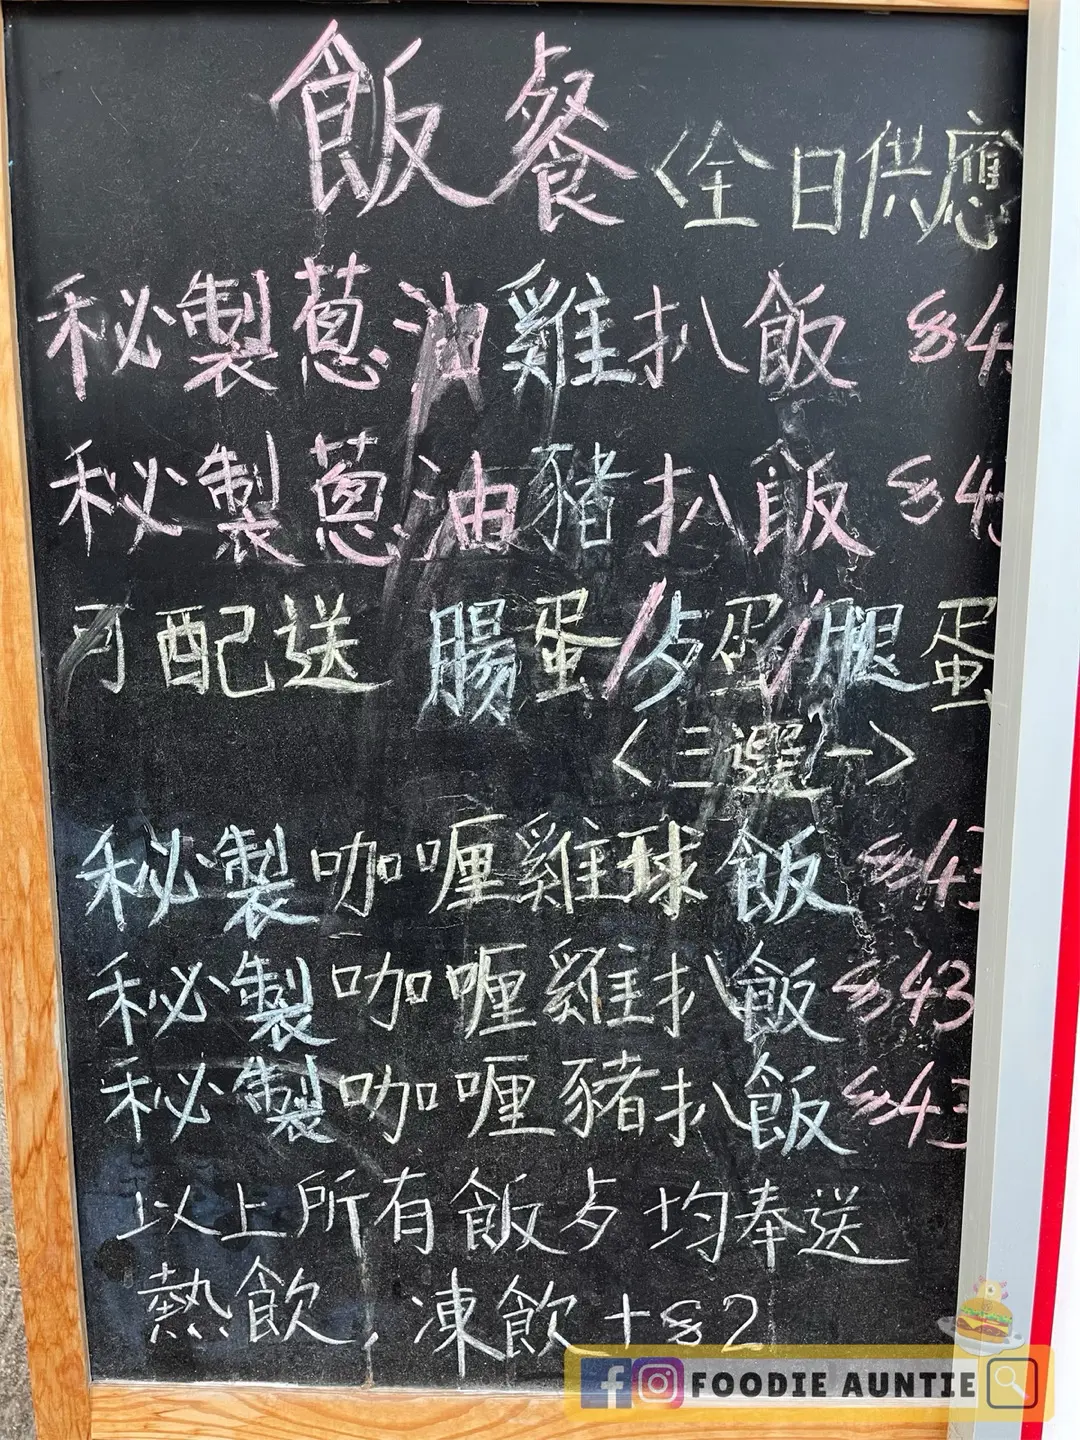 飯餐〈全日供應
秘製蔥油雞扒飯 $4
秘製蔥油豬扒飯 $4
可配送 腸蛋/歺蛋/腿蛋
〈三選一〉
秘製咖喱雞球飯 $43
秘製咖喱雞扒飯 $43
秘製咖喱豬扒飯 $43
以上所有飯歺均奉送
熱飲，凍飲+$2
FOODIE AUNTIE